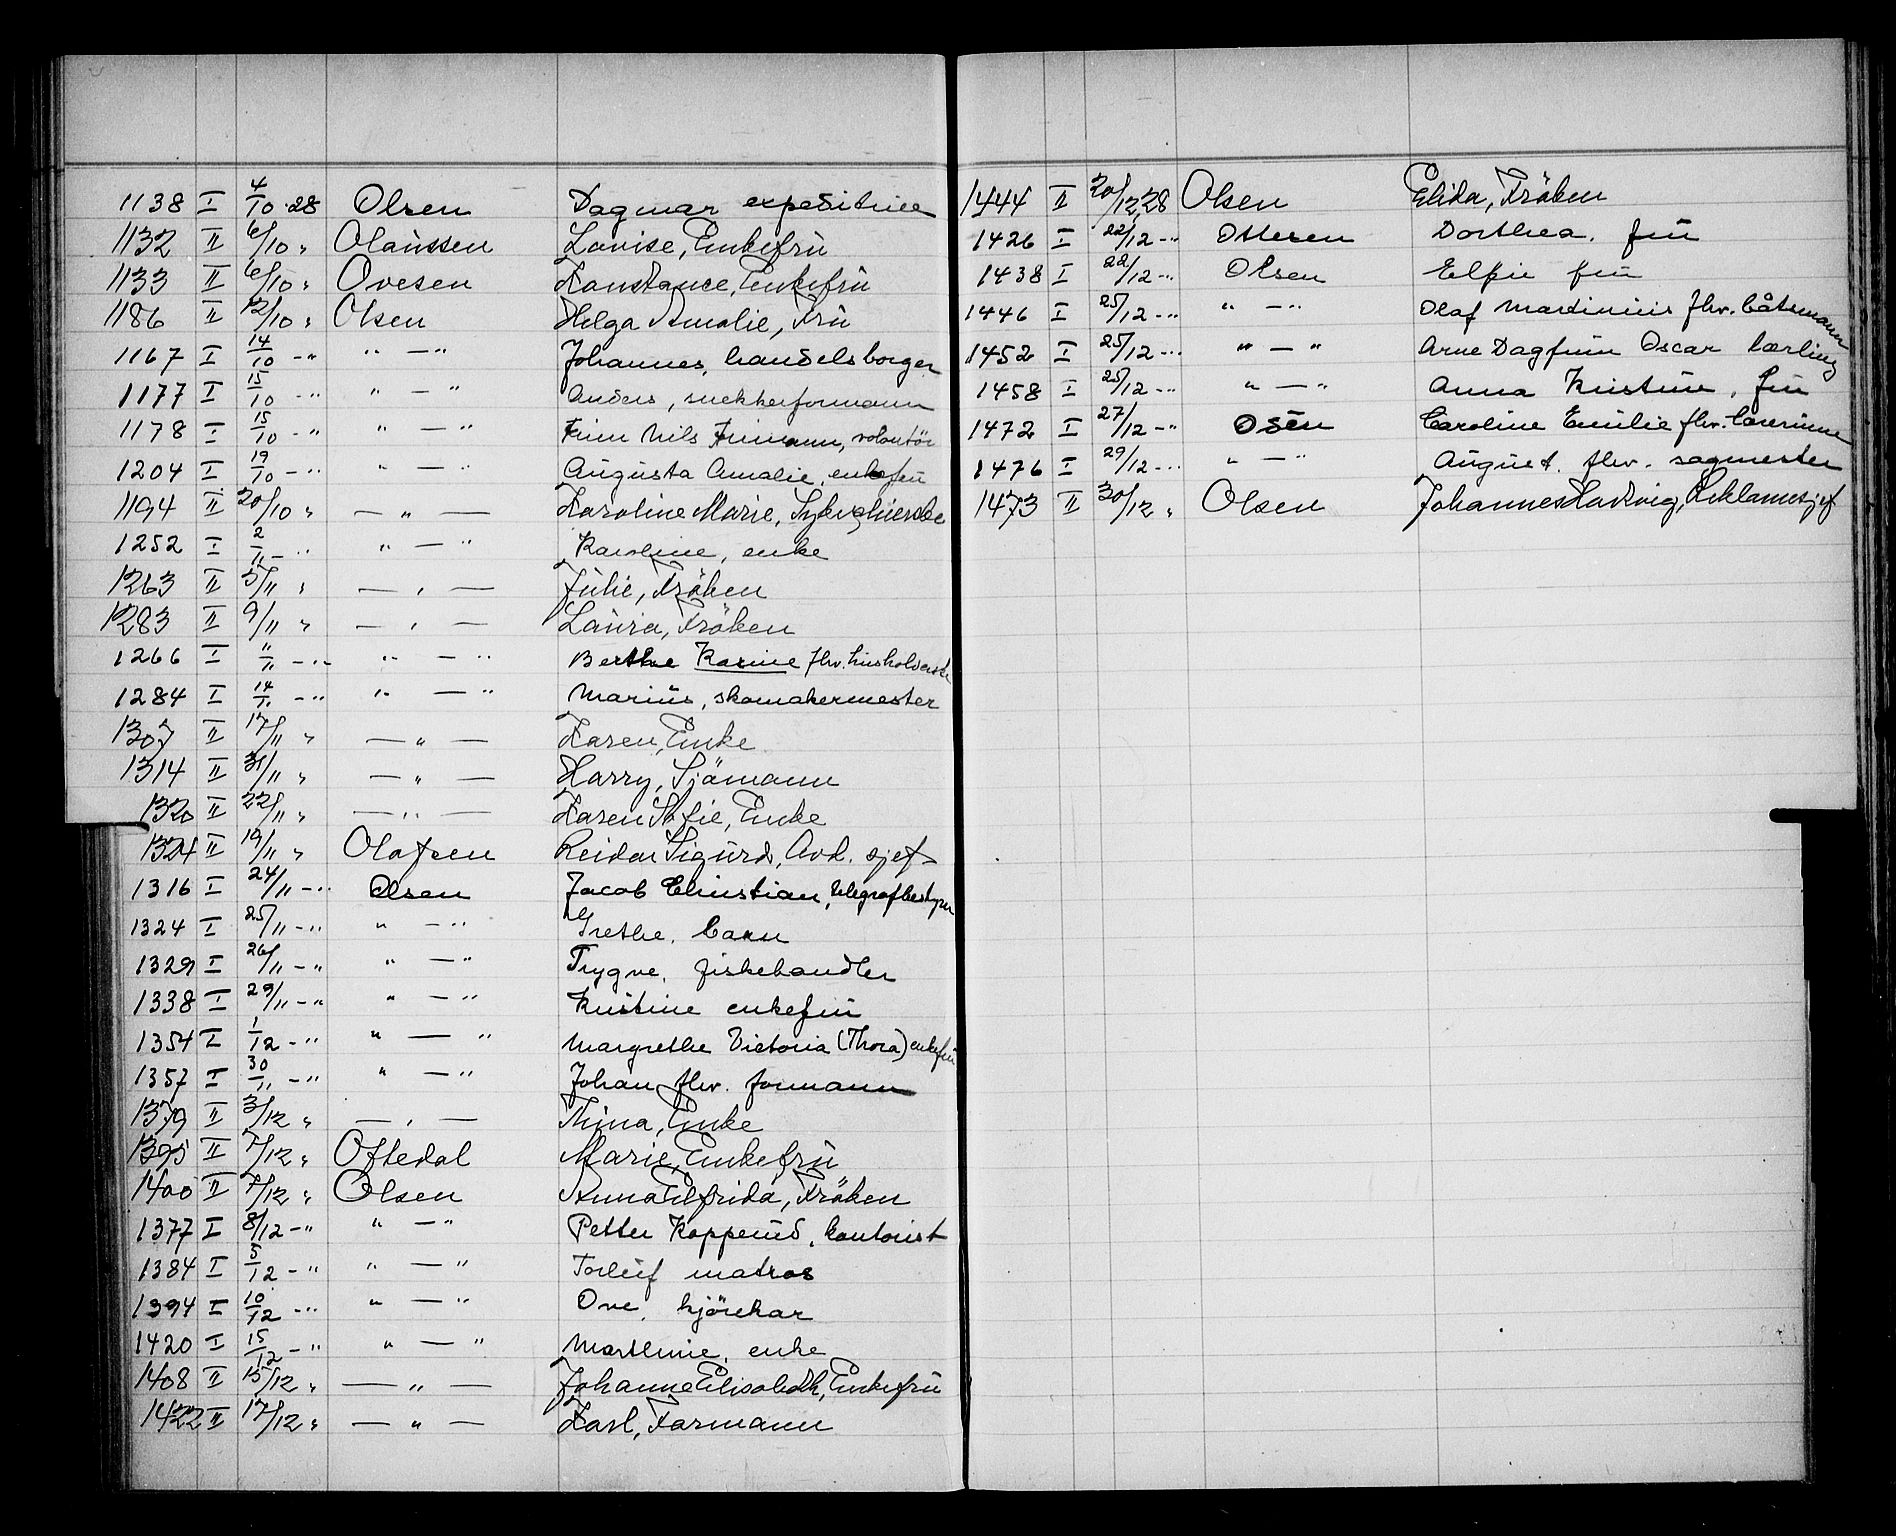 1138 I 4/10 28 Olsen Dagmar expeditrice
1132 II 6/10 " Olaussen Lovise, Enkefru
1133 II 6/10 " Ovesen Konstance, Enkefru
1186 II 12/10 " Olsen Helga Amalie, Fru
1167 I 14/10 - " " — " Johannes, handelsborger
1177 I 15/10 - " " — " Anders, snekkerformann
1178 I 15/10 - " " — " Finn Nils volontör
1204 I 19/10 - " " — " Augusta Amalie, enkefru
1194 II 20/10 " — " — Karoline Marie,
1252 I 2/11 - " " — " Karoline, enke
1263 II 5/11 " — " — Julie, Fröken
1283 II 9/11 " — " — Laura, Fröken
1266 I "/11 - " " — " Berthe Karine fhv. husholderske
1284 I 14/11 - " " — " Marius, skomakermester
1307 II 17/11 " — " — Karen, Enke
1314 II 31/11 " — " — Harry, Sjömann
1320 II 22/11 " — " — Karen Sofie, Enke
1324 II 19/11 " Olafsen Reidar Sigurd, Avd. sjef
1316 I 24/11 - " Olsen Jacob Christian, telegrafbestyrer
1324 I 25/11 - " " — " Grethe, barn
1329 I 26/11 - " " — " Trygve, fiskehandler
1338 I 29/11 - " " — " Kristine enkefru
1354 I 1/12 - " " — " Margrethe Victoria (Thora) enkefru
1357 I 30/11 - " " — " Johan fhv. formann
1379 II 3/12 " — " — Thina, Enke
1395 II 7/12 " Oftedal Marie, Enkefru
1400 II 7/12 " Olsen Anna Elfrida, Fröken
1377 I 8/12 - " " — " Petter Kopperud, kontorist
1384 I 5/12 - " " — " Torleif matros
1394 I 10/12 - " " — " Ove, kjörekar
1420 I 15/12 - " " — " Marthine, enke
1408 II 15/12 " — " — Johanne Elisabeth, Enkefru
1422 II 17/12 " — " — Karl, Formann
1444 II 20/12 28 Olsen Elida, Fröken
1426 I 22/12 - " Ottesen Dorthea, fru
1438 I 22/12 - " Olsen Elfie fru
1446 I 25/12 - " " — " Olaf Martinius fhv. båtsmann
1452 I 25/12 - " " — " Arne Dagfinn Oscar lærling
1458 I 25/12 - " " — " Anna Kristine, fru
1472 I 27/12 - " Osen Caroline Emilie fhv. lærerinne
1476 I 29/12 - " " — " August, fhv. sagmester
1473 II 30/12 " Olsen Johannes Hartvig, Reklamesjef